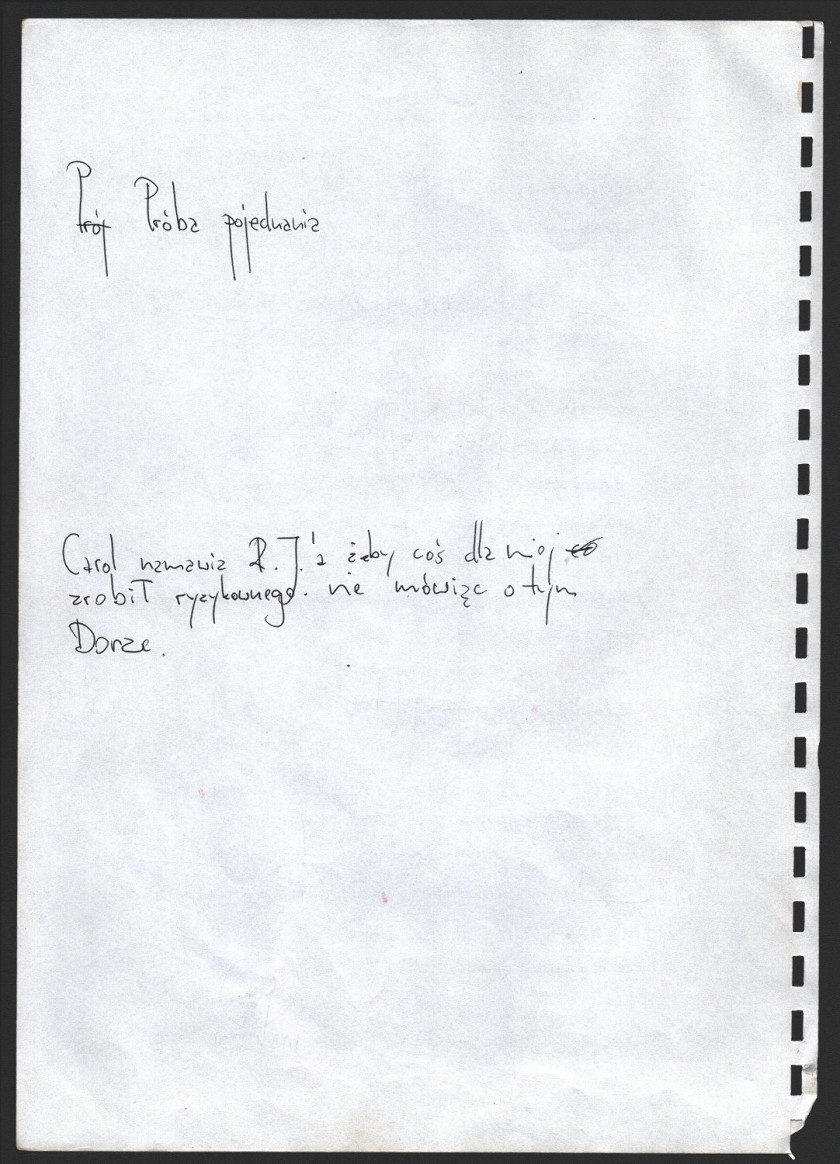 Próba pojednania
Carol namawia R.J.'a żeby coś dla niej
zrobił ryzykownego. nie mówiąc o tym
Dorze.